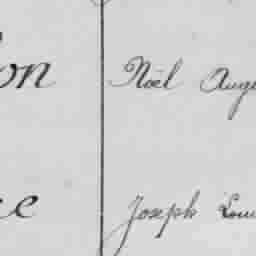 on Noël Aug
e Joseph Lou